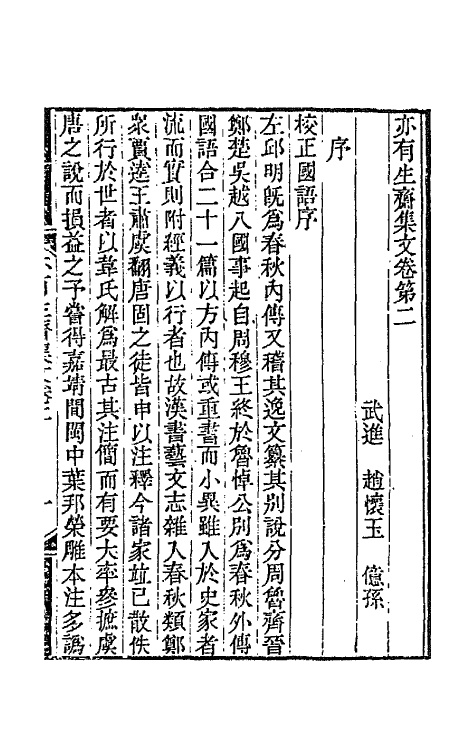 亦有生齋集文卷第二
武進　趙懷玉　億孫
序
校正國語序
左邱明旣爲春秋內傳又稽其逸文纂其别說分周魯齊晉
鄭楚吳越八國事起自周穆王終於魯悼公别爲春秋外傳
國語合二十一篇以方內傳或重書而小異雖入於史家者
流而實則附經義以行者也故漢書藝文志雜入春秋類鄭
衆賈逵王肅虞翻唐固之徒皆申以注釋今諸家竝已散佚
所行於世者以韋氏解爲最古其注簡而有要大率參摭虞
唐之說而損益之予嘗得嘉靖間閩中葉邦榮雕本注多譌